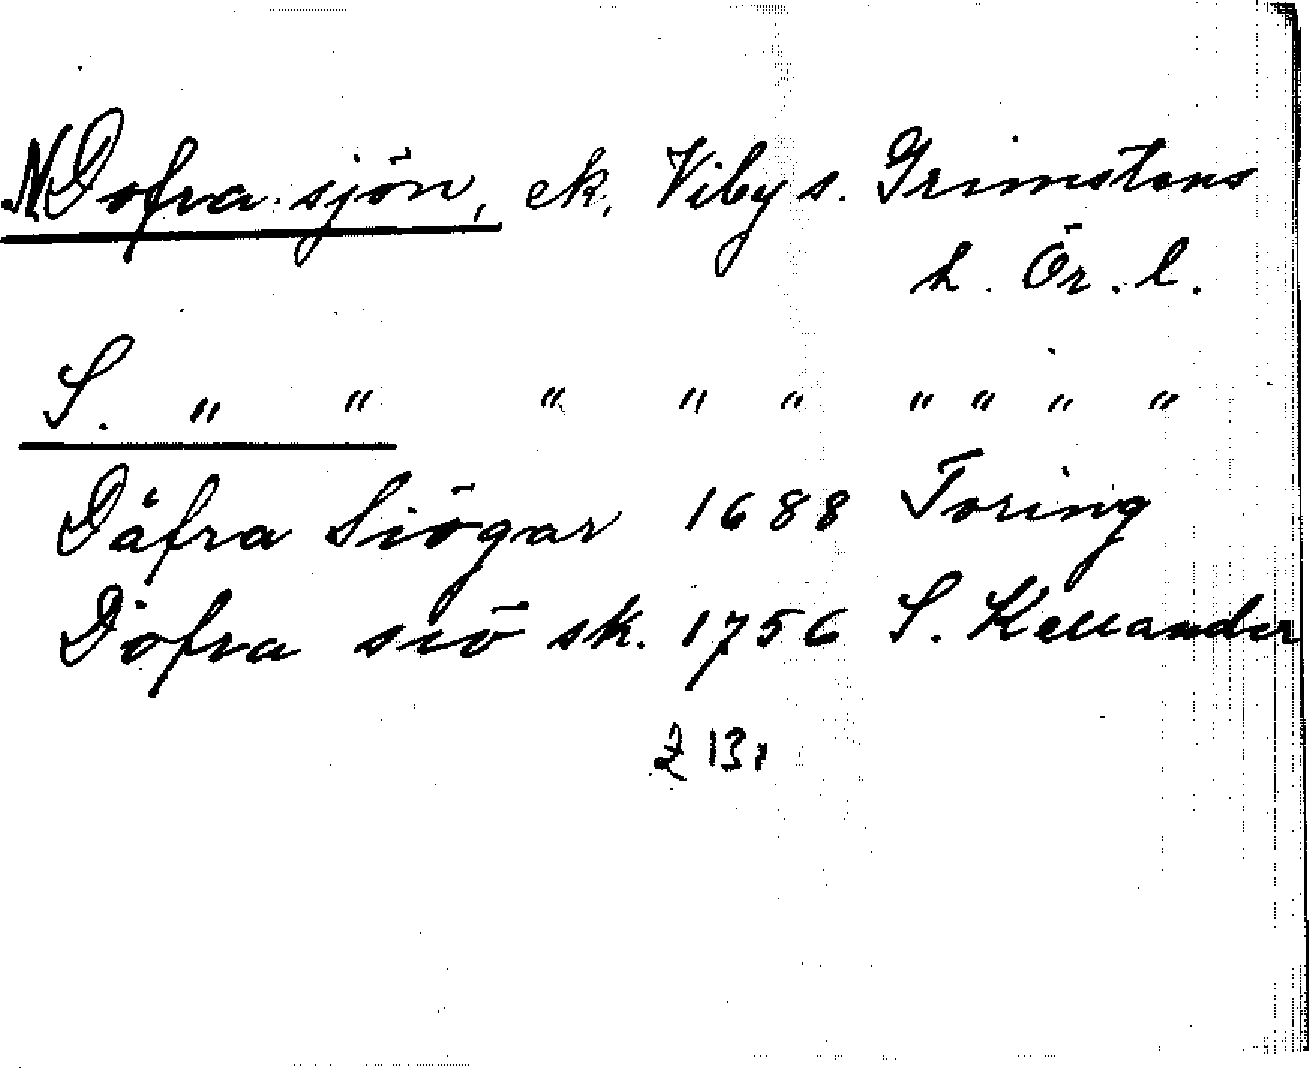 N Dofra sjön, ek. Viby s. Grimstens
h. Ör. l.
S. " " " " " " " " "
Dåfra Siögar 1688 Toring
Döfra siö sk. 1756 S. Kellander
131